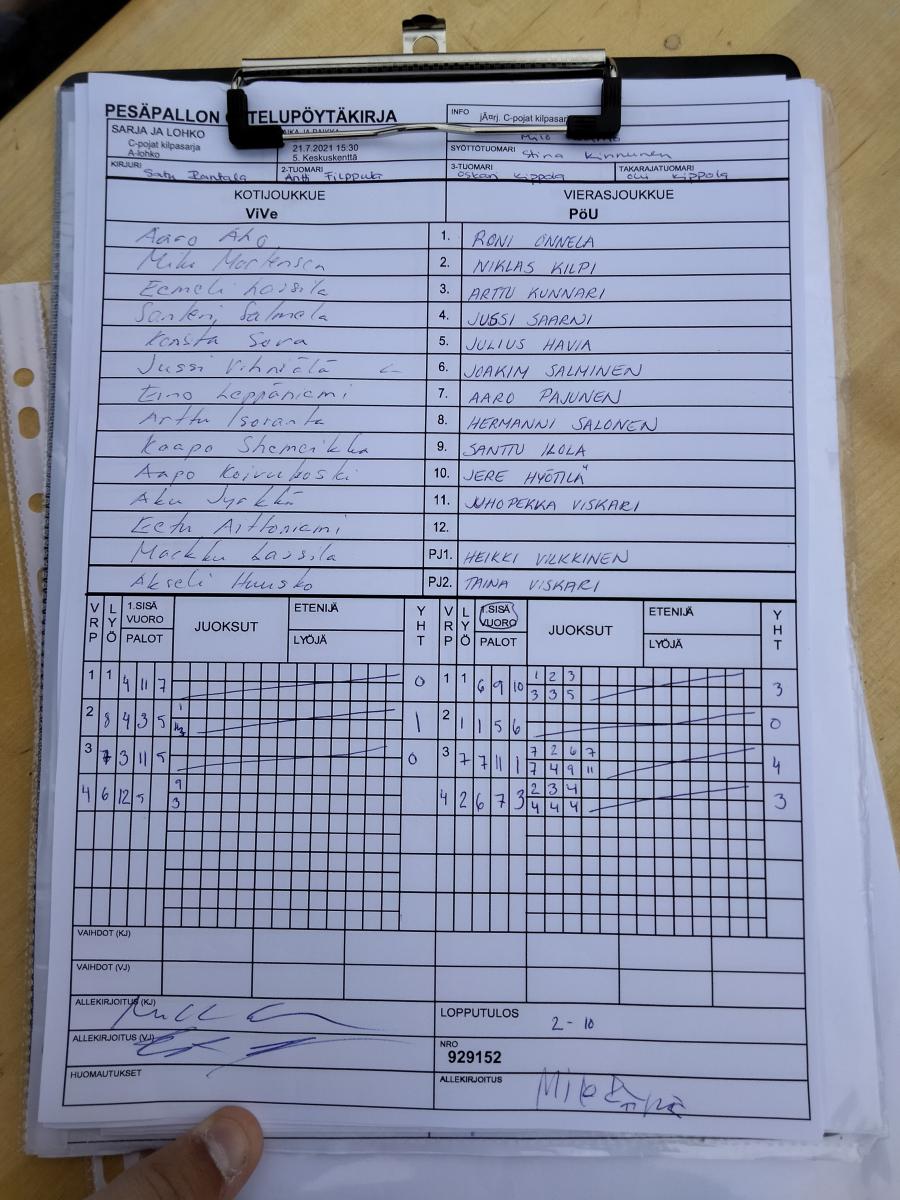 PESÄPALLON OTTELUPÖYTÄKIRJA
INFO jÃ¤rj. C-pojat kilpasarj
SARJA JA LOHKO
C-pojat kilpasarja
A-lohko
21.7.2021 15:30
5. Keskuskenttä
SYÖTTÖTUOMARI Stina Kinnunen
KIRJURI Satu Rantala
2-TUOMARI Antti Filppula
3-TUOMARI Oskari Kippola
TAKARAJATUOMARI Olli Kippola
KOTIJOUKKUE VIERASJOUKKUE
ViVe PöU
Aaro Aho 1. RONI ONNELA
Miku Mortensen 2. NIKLAS KILPI
Eemeli Lassila 3. ARTTU KUNNARI
Santeri Salmela 4. JUSSI SAARNI
Konsta Sova 5. JULIUS HAVIA
Jussi Vihniälä 6. JOAKIM SALMINEN
Eino Leppäniemi 7. AARO PAJUNEN
Arttu Isoranta 8. HERMANNI SALONEN
Kaapo Shemeikka 9. SANTTU ILOLA
Aapo Koivukoski 10. JERE HYÖTILÄ
Aku Jyrkkä 11. JUHOPEKKA VISKARI
Eetu Arttoniemi 12.
Markku Lassila PJ1. HEIKKI VILKKINEN
Akseli Huusko PJ2. TAINA VISKARI
VRP LYÖ 1.SISÄ VUORO PALOT JUOKSUT ETENIJÄ LYÖJÄ YHT VRP LYÖ 1.SISÄ VUORO PALOT JUOKSUT ETENIJÄ LYÖJÄ YHT
1 1 4 11 7 0 1 1 6 9 10 1 2 3 3
3 3 5
2 8 4 3 5 1 1 2 1 1 5 6 0
3 7 3 11 5 0 3 7 7 11 1 7 2 6 7 4
7 4 9 11
4 6 12 5 9 4 2 6 7 3 2 3 4 3
3 4 4 4
VAIHDOT (KJ)
VAIHDOT (VJ)
ALLEKIRJOITUS (KJ)
LOPPUTULOS 2-10
ALLEKIRJOITUS (VJ)
NRO
929152
HUOMAUTUKSET
ALLEKIRJOITUS